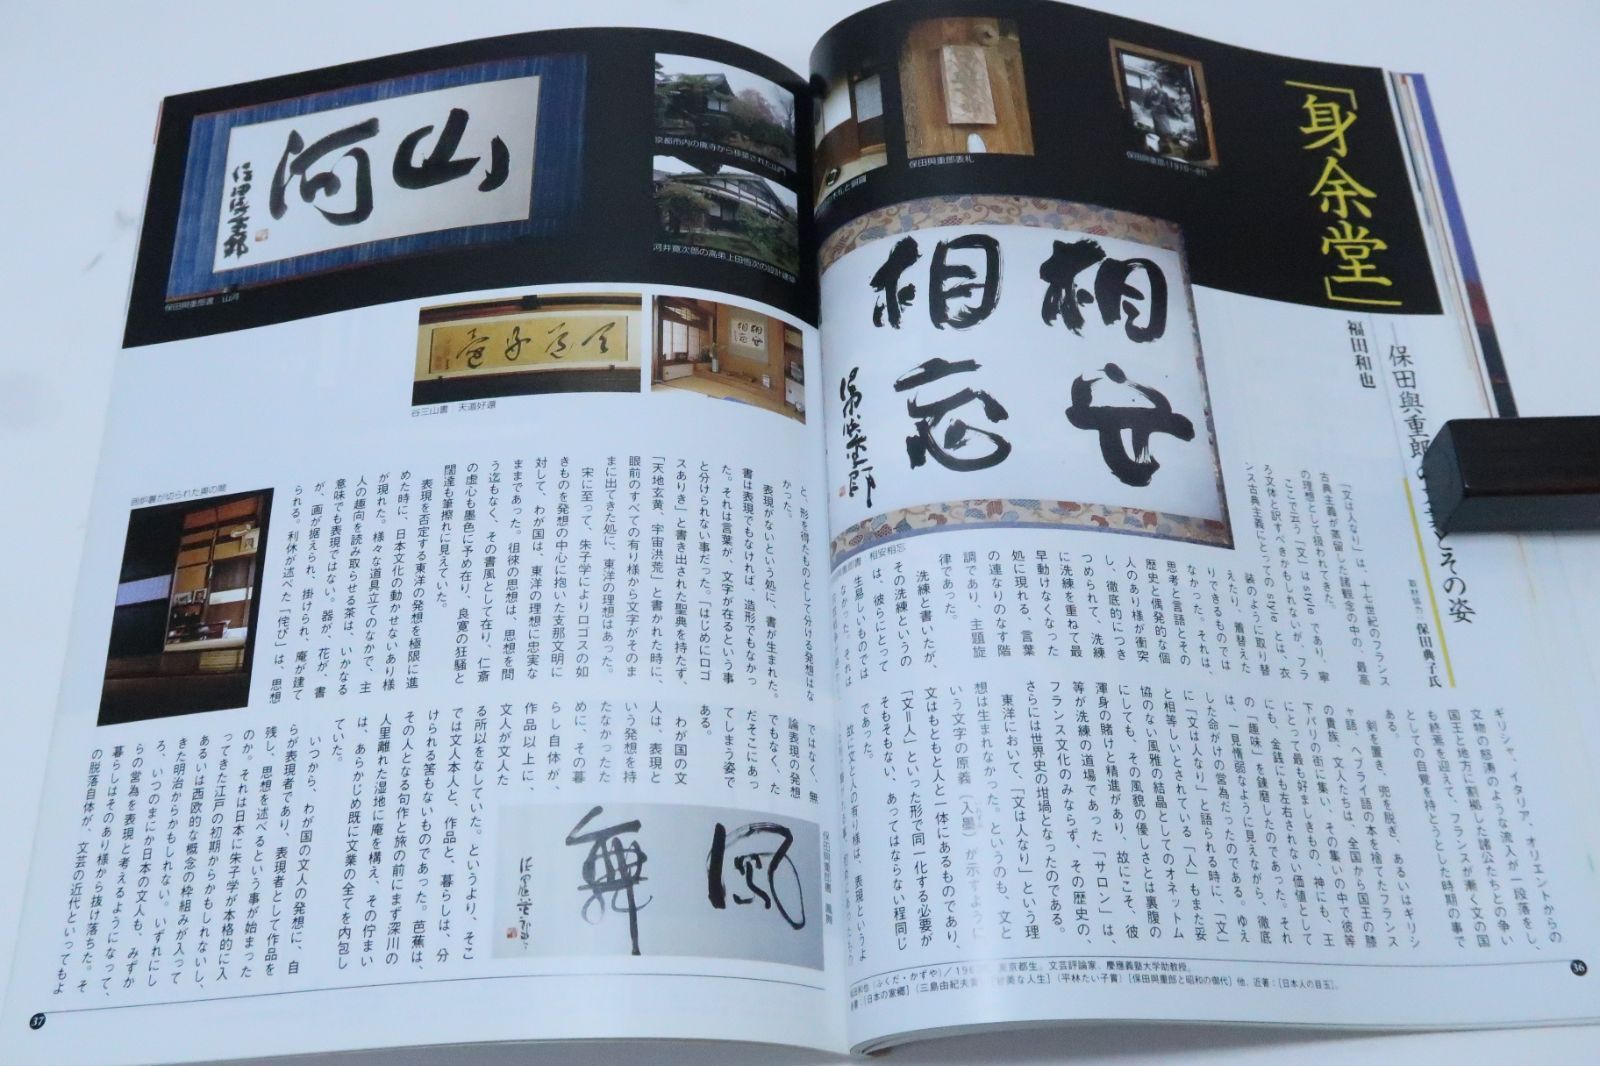 「身余堂」
保田與重郎の
とその姿
福田和也
取材協力 保田典子氏
保田與重郎(1910〜81)
保田與重郎表札
相安
相忘
相安相忘
「文は人なり」は、十七世紀のフランス
古典主義が蒸留した諸観念の中の、最高
の理想として扱われてきた。
ここで云う「文」は style であり、寧
ろ文体と訳すべきかもしれないが、フラ
ンス古典主義にとっての style とは、衣
装のように取り替
えたり、着替えた
りできるものでは
なかった。それは、
思考と言語とその
歴史と偶発的な個
人のあり様が衝突
し、徹底的につき
つめられて、洗練
に洗練を重ねて最
早動けなくなった
処に現れる、言葉
の連なりのなす階
調であり、主題旋
律であった。
洗練と書いたが、
その洗練というの
は、彼らにとって
生易しいものでは
なかった。それは
ギリシャ、イタリア、オリエントからの
文物の怒涛のような流入が一段落をし、
国王と地方に割拠した諸公たちとの争い
も終焉を迎えて、フランスが漸く文の国
としての自覚を持とうとした時期の事で
ある。
剣を置き、兜を脱ぎ、あるいはギリシ
ャ語、ヘブライ語の本を捨てたフランス
の貴族、文人たちは、全国から国王の膝
下とパリの街に集い、その集いの中で彼等
にとって最も好ましきもの、神にも、王
にも、金銭にも左右されない価値として
の「趣味」を錬磨したのであった。それ
は、一見惰弱なように見えながら、徹底
した命がけの営為だったのである。ゆえ
に「文は人なり」と語られる時に、「文」
と相等しいとされている「人」もまた妥
協のない風雅の結晶としてのオネットム
にしても、その風貌の優しさとは裏腹の
渾身の賭けと精進があり、故にこそ、彼
等が洗練の道場であった「サロン」は、
フランス文化のみならず、その歴史の、
さらには世界史の坩堝となったのである。
東洋において、「文は人なり」という理
想は生まれなかった。というのも、文と
いう文字の原義(入墨)が示すように
文はもともと人と一体にあるものであり、
「文=人」といった形で同一化する必要が
そもそもない、あってはならない程同じ
であった。
東京都生。文芸評論家、慶應義塾大学助教授。
[日本の家郷](三島由紀夫賞)
(平林たい子賞)[保田與重郎と昭和の御代]他、近著:[日本人の目玉]。
36
京都市内の廃寺から移築された山門
河井寛次郎の高弟上田恒次の設計建築
山河
保田與重郎書 山河
谷三山書 天道好還
囲炉裏が切られた奥の間
と、形を得たものとして分ける発想はな
かった。
表現がないという処に、書が生まれた。
書は表現でもなければ、造形でもなかっ
た。それは言葉が、文字が在るという事
と分けられない事だった。「はじめにロゴ
スありき」と書き出された聖典を持たず、
「天地玄黄、宇宙洪荒」と書かれた時に、
眼前のすべての有り様から文字がそのま
まに出てきた処に、東洋の理想はあった。
宋に至って、朱子学によりロゴスの如
きものを発想の中心に抱いた支那文明に
対して、わが国は、東洋の理想に忠実な
ままであった。徂徠の思想は、思想を問
う迄もなく、その書風として在り、仁斎
の虚心も墨色に予め在り、良寛の狂騒と
闊達も筆擦れに見えていた。
表現を否定する東洋の発想を極限に進
めた時に、日本文化の動かせないあり様
が現れた。様々な道具立てのなかで、主
人の趣向を読み取らせる茶は、いかなる
意味でも表現ではない。器が、花が、書
が、画が据えられ、掛けられ、庵が建て
られる。利休が述べた「侘び」は、思想
ではなく、無
論表現の発想
でもなく、た
だそこにあっ
てしまう姿で
ある。
わが国の文
人は、表現と
いう発想を持
たなかったた
めに、その暮
らし自体が、
作品以上に、
文人が文人た
る所以をなしていた。というより、そこ
では文人本人と、作品と、暮らしは、分
けられる筈もないものであった。芭蕉は、
その人となる句作と旅の前にまず深川の
人里離れた湿地に庵を構え、その佇まい
は、あらかじめ既に文業の全てを内包し
ていた。
いつから、わが国の文人の発想に、自
らが表現者であり、表現者として作品を
残し、思想を述べるという事が始まった
のか。それは日本に朱子学が本格的に入
ってきた江戸の初期からかもしれないし、
あるいは西欧的な概念の枠組みが入って
きた明治からかもしれない。いずれにし
ろ、いつのまにか日本の文人も、みずか
らの営為を表現と考えるようになって、
暮らしはそのあり様から抜け落ちた。そ
の脱落自体が、文芸の近代といってもよ
風舞
保田與重郎書 風舞
37